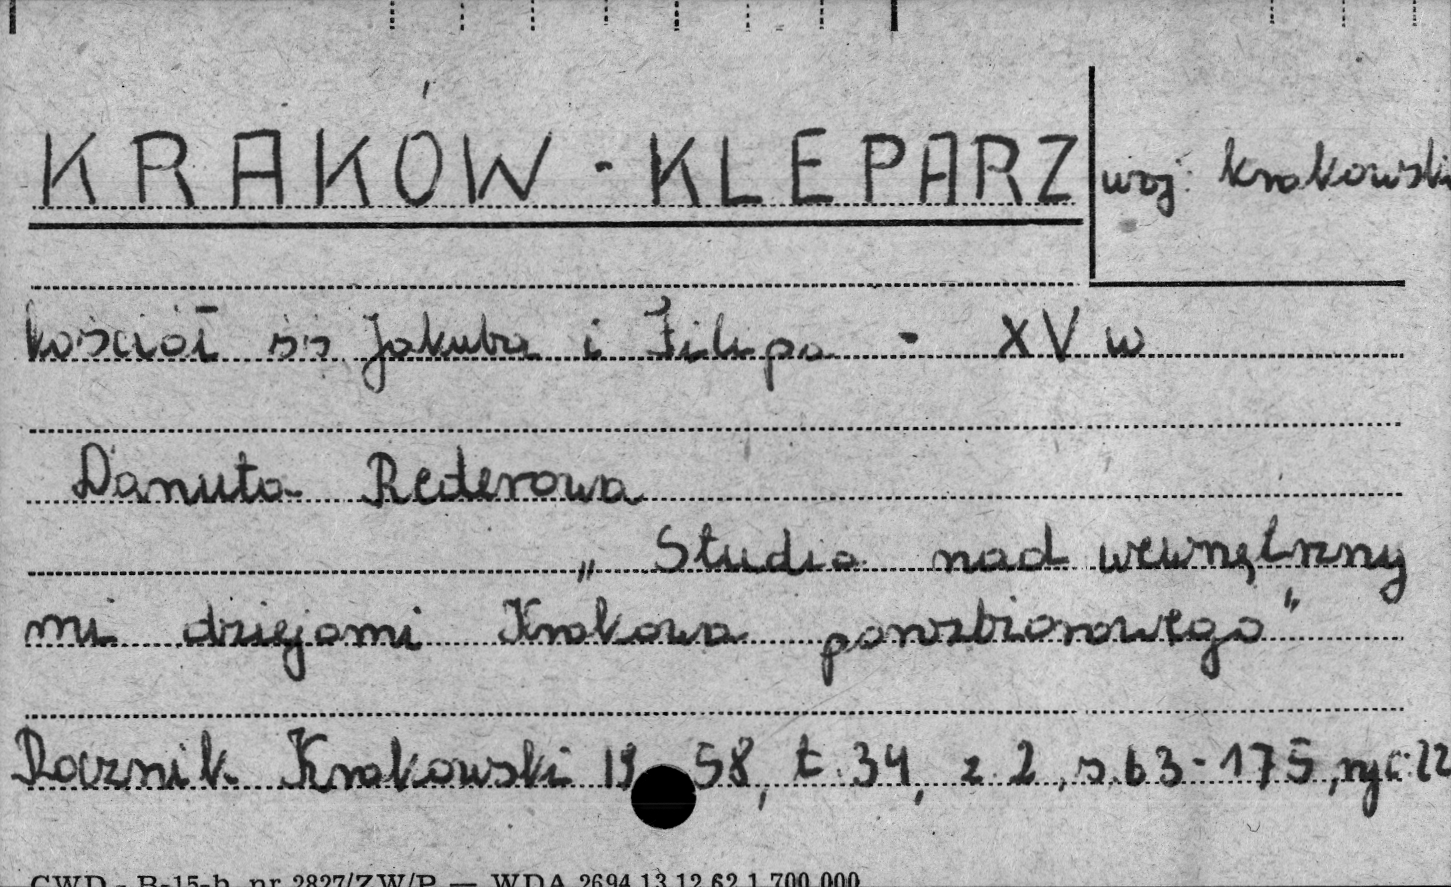 KRAKÓW - KLEPARZ
woj. krakowski
kościół śś Jakuba i Filipa - XV w
Danuta Rederowa
„Studia nad wewnętrzny
mi dziejami Krakowa porozbiorowego"
Rocznik Krakowski 1958, t. 34, z. 2, s. 63-175, ryc. 22
CWD - B-15-b, nr 2827/ZW/P — WDA 2694 13.12.62 1.700.000